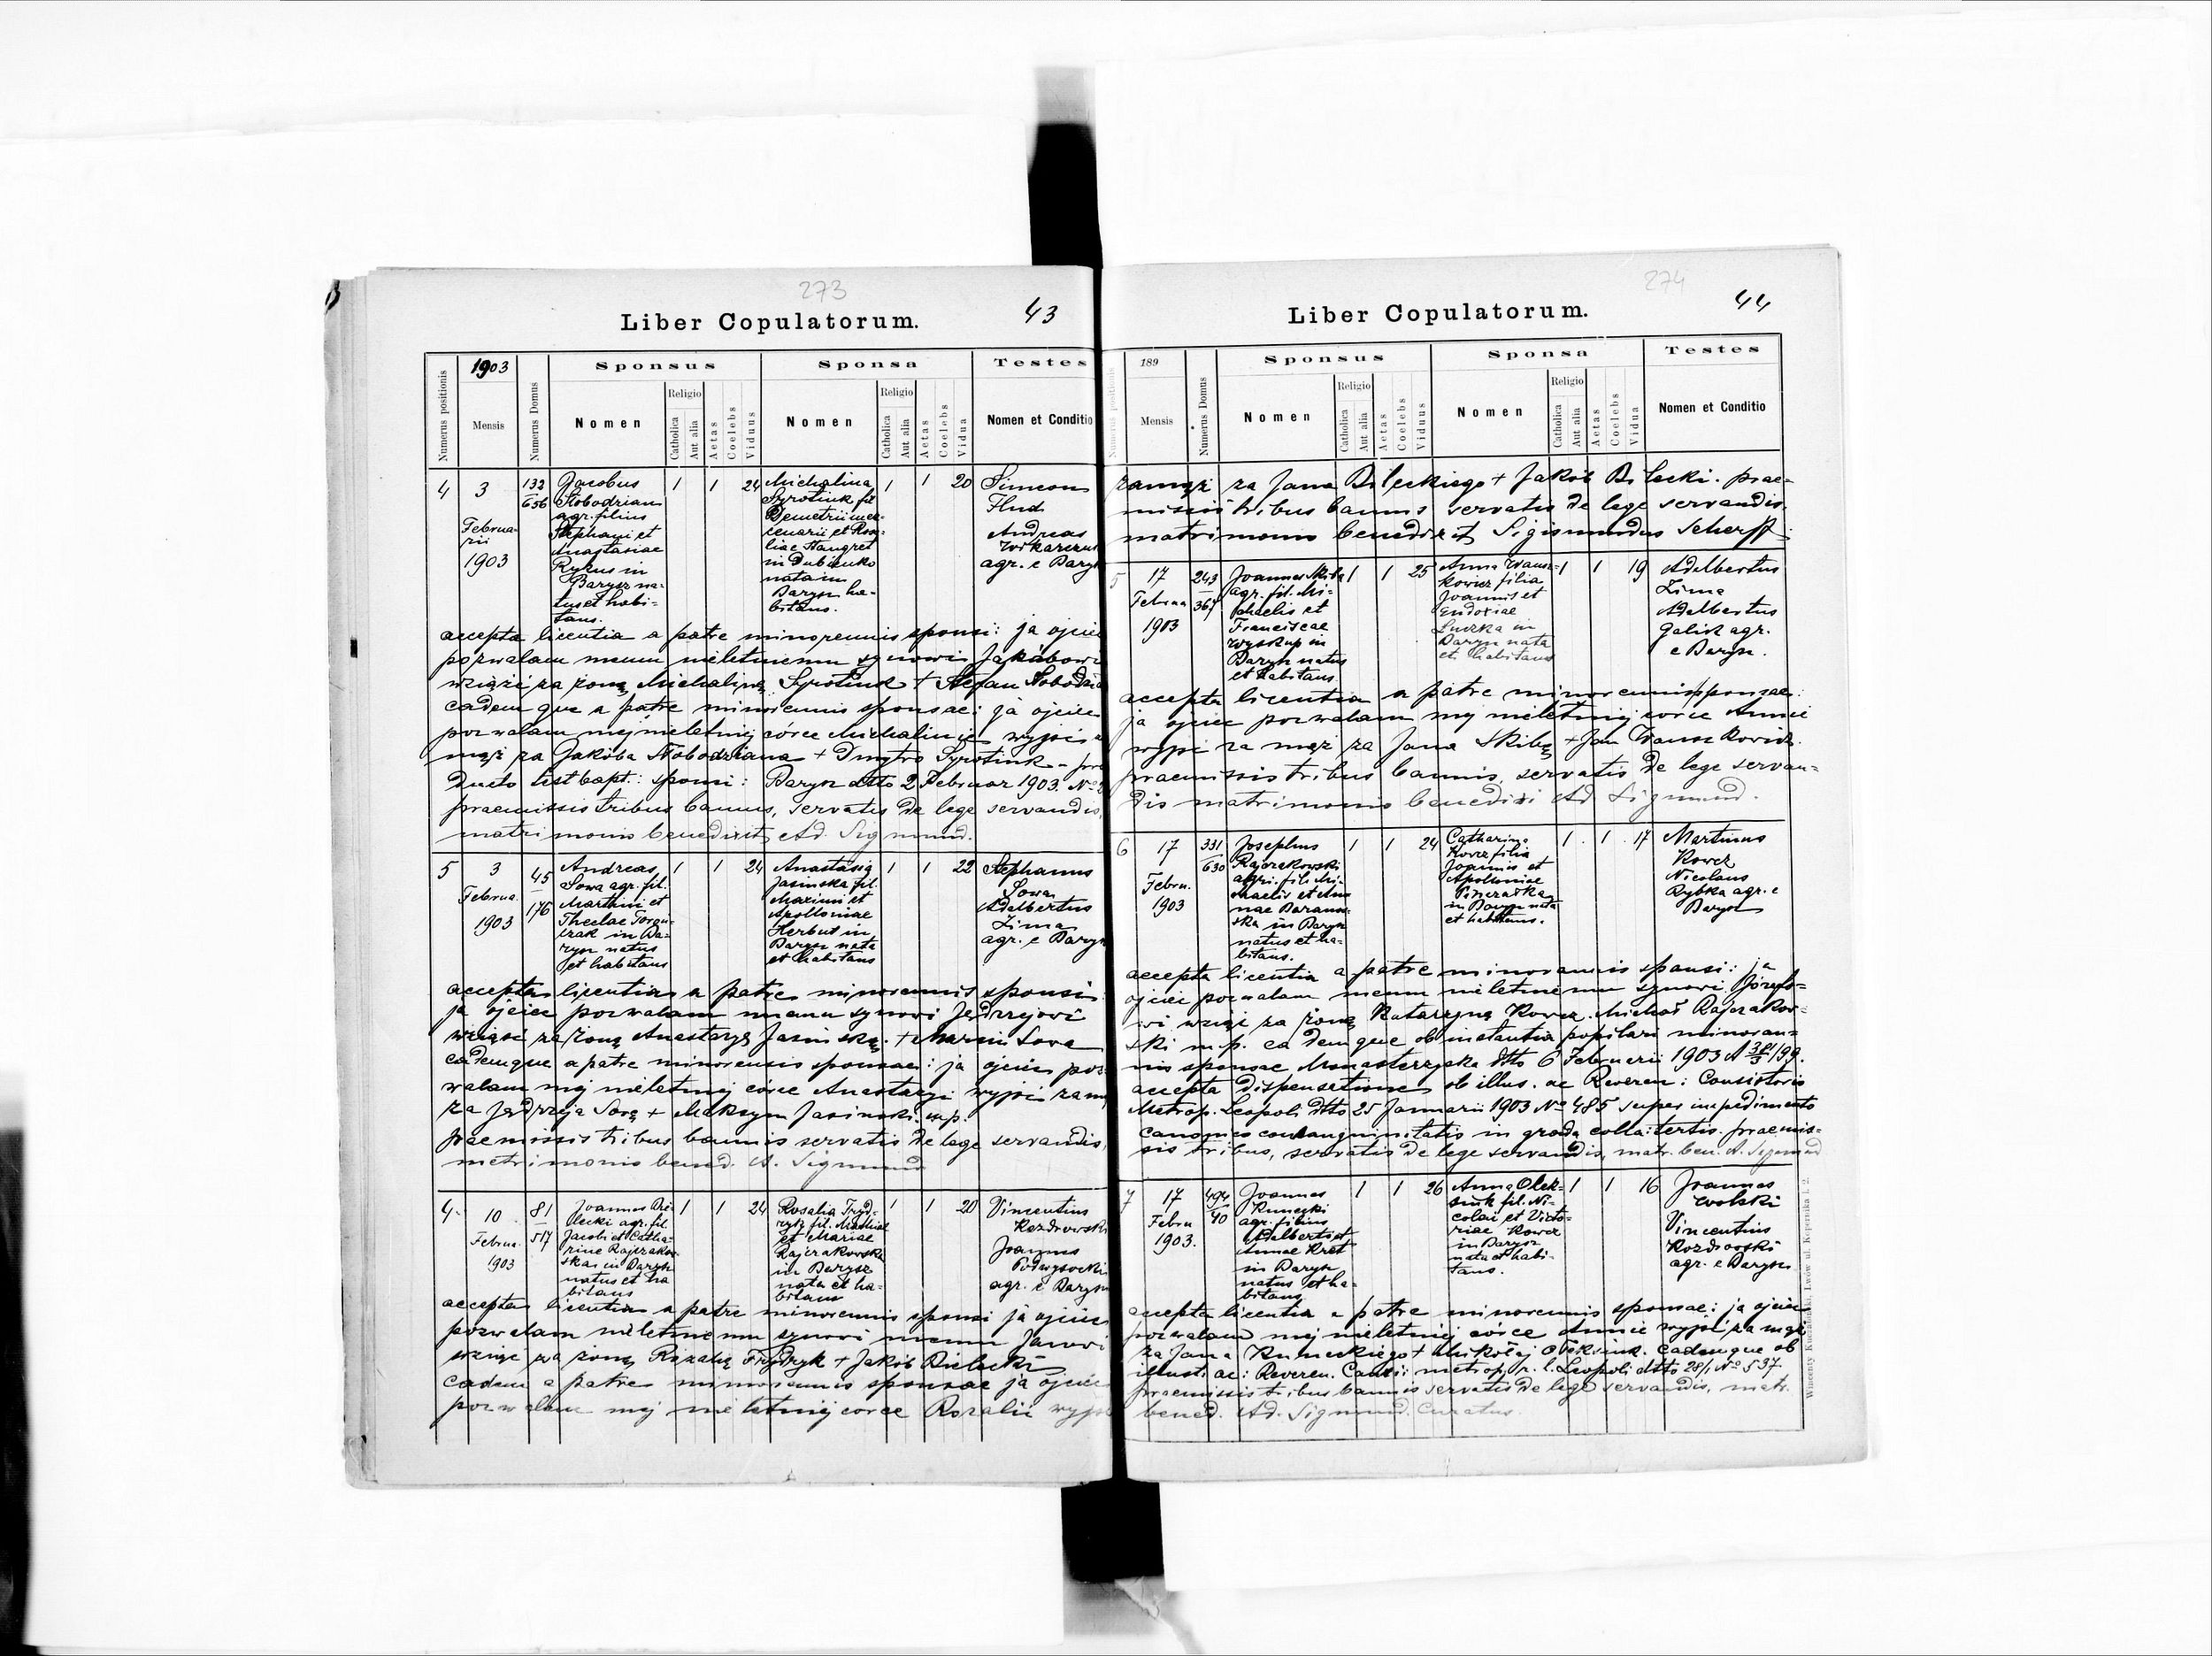 273
Liber Copulatorum. 43
Numerus positionis
1903
Mensis
Numerus Domus
Sponsus
Nomen
Religio
Catholica
Aut alia
Aetas
Coelebs
Viduus
Sponsa
Nomen
Religio
Catholica
Aut alia
Aetas
Coelebs
Vidua
Testes
Nomen et Conditio
4
3
Februa-
rii
1903
132
656
Jacobus
Słobodzian
agr. filius
Stephani et
Anastasiae
Rykus in
Barysz na-
tus et habi-
tans.
1 1 24
Michalina
Syrotiuk fil
Demetrii mer-
cenarii et Rosa-
liae Stangret
in Dubienko
nata in
Barysz ha-
bitans.
1 1 20
Simeon
Hud
Andreas
agr. e Barysz
accepta licentia a patre minorennis sponsi: ja ojciec
pozwalam memu nieletniemu synowi Jakóbowi
wziąść za żonę Michalinę Syrotiuk + Stefan Słobodzian
eademque a patre minorennis sponsae: ja ojciec
pozwalam mej nieletniej córce Michalinie wyjść
mąż za Jakóba Słobodziana + Dmytro Syrotiuk -
ducto test bapt.: sponsi: Barysz dtto 2 Februar 1903. No
praemissis tribus bannis, servatis de lege servandis,
matrimonio benedixit Ad. Sigmund.
5
3
Februa.
1903
45
176
Andreas
Sowa agr. fil.
Martini et
Theclae Torgu-
czak in Ba-
rysz natus
et habitans
1 1 24
Anastasia
Jasinska fil.
Maximi et
Apolloniae
Herbut in
Barysz nata
et habitans
1 1 22
Stephanus
Sowa
Adelbertus
Zima
agr. e Barysz
accepta licentia a patre minorennis sponsi
ja ojciec pozwalam memu synowi Jędrzejowi
wziąść za żonę Anastazyę Jasinską. + Marcin Sowa
eademque a patre minorennis sponsae: ja ojciec poz-
walam mej nieletniej córce Anastazyi wyjść za mąż
za Jędrzeja Sowę + Maksym Jasinski. m.p.
praemissis tribus bannis servatis de lege servandis,
matrimonio bened. A. Sigmund
4.
10
Februa.
1903
81
517
Joannes Bi-
lecki agr. fil.
Jacobi et Catha-
rinae Rajzakow-
ska in Barysz
natus et ha
bitans
1 1 24
Rosalia Fryd-
ryk fil.
et Mariae
Rajzakowska
in Barysz
nata et ha-
bitans
1 1 20
Vincentius
Kozdrowski
Joannes
Podwysocki
agr. e Barysz
accepta licentia a patre minorennis sponsi ja ojciec
pozwalam nieletniemu synowi memu Janowi
wziąć za żonę Rozalię Frydryk + Jakób Bielecki
eadem a patre minorennis sponsae ja ojciec
pozwalam mej nieletniej córce Rozalii wyjść
274
Liber Copulatorum. 44
Numerus positionis
189
Mensis
Numerus Domus
Sponsus
Nomen
Religio
Catholica
Aut alia
Aetas
Coelebs
Viduus
Sponsa
Nomen
Religio
Catholica
Aut alia
Aetas
Coelebs
Vidua
Testes
Nomen et Conditio
zamąż za Jana Bileckiego + Jakób Bilecki. prae-
missis tribus bannis servatis de lege servandis.
matrimonio benedixit Sigismundus Scherff
5
17
Februa
1903
243
367
Joannes Skiba
agr. fil. Mi-
chaelis et
Franciscae
Wyskup in
Barysz natus
et habitans
1 1 25
Anna Iwasz-
kowicz filia
Joannis et
Eudoxiae
Luczka in
Barysz nata
et habitans
1 1 19
Adelbertus
Zima
Adelbertus
Galick agr.
e Barysz.
accepta licentia a patre minorennis sponsae:
ja ojciec pozwalam mej nieletniej córce Annie
wyjść za mąż za Jana Skibę + Jan Iwaszkowicz.
praemissis tribus bannis, servatis de lege servan-
dis matrimonio benedixi Ad Sigmund.
6
17
Febru.
1903
331
630
Josephus
Rajzakowski
agri. fil. Mi-
chaelis et An-
nae Baranow-
ska in Barysz
natus et ha-
bitans.
1 1 24
Catharina
Kowcz filia
Joannis et
Apolloniae
in Barysz nata
et habitans.
1 1 17
Martinus
Kowcz
Nicolaus
Rybka agr. e
Barysz
accepta licentia a patre minorennis sponsi: ja
ojciec pozwalam memu nieletniemu synowi Józefo-
wi wziąć za żonę Katarzynę Kowcz. Michał Rajzakow-
ski m.p. eademque ob instantia pupilari minoren-
nis sponsae Monasterzyska dtto 6 Februarii 1903
accepta dispensatione ob illus. ac Reveren: Consistorio
Metrop. Leopoli dtto 25 Januarii 1903 No 485 super impedimento
canonico consanguinitatis in gradu colla: tertio. praemis-
sis tribus, servatis de lege servandis, matr. ben. A. Sigmund
7
17
Febru
1903.
494
40
Joannes
Kunecki
agr. filius
Adalberti et
Annae Kret
in Barysz
natus et ha-
bitans
1 1 26
Anna Olek-
siuk fil. Ni-
colai et Victo-
riae Kowcz
in Barysz
nata et habi-
tans.
1 1 16
Joannes
Wolski
Vincentius
Kozdrowski
agr. e Barysz
accepta licentia a patre minorennis sponsae: ja ojciec
pozwalam mej nieletniej córce Annie wyjść za mąż
za Jana Kuneckiego + Mikołaj Oleksiuk. eademque ob
illust. ac: Reveren. Consi: metrop. r. l. Leopoli dtto 28/1 No 537.
praemissis tribus bannis servatis de lege servandis, matr.
bened. Ad. Sigmund. Curatus.